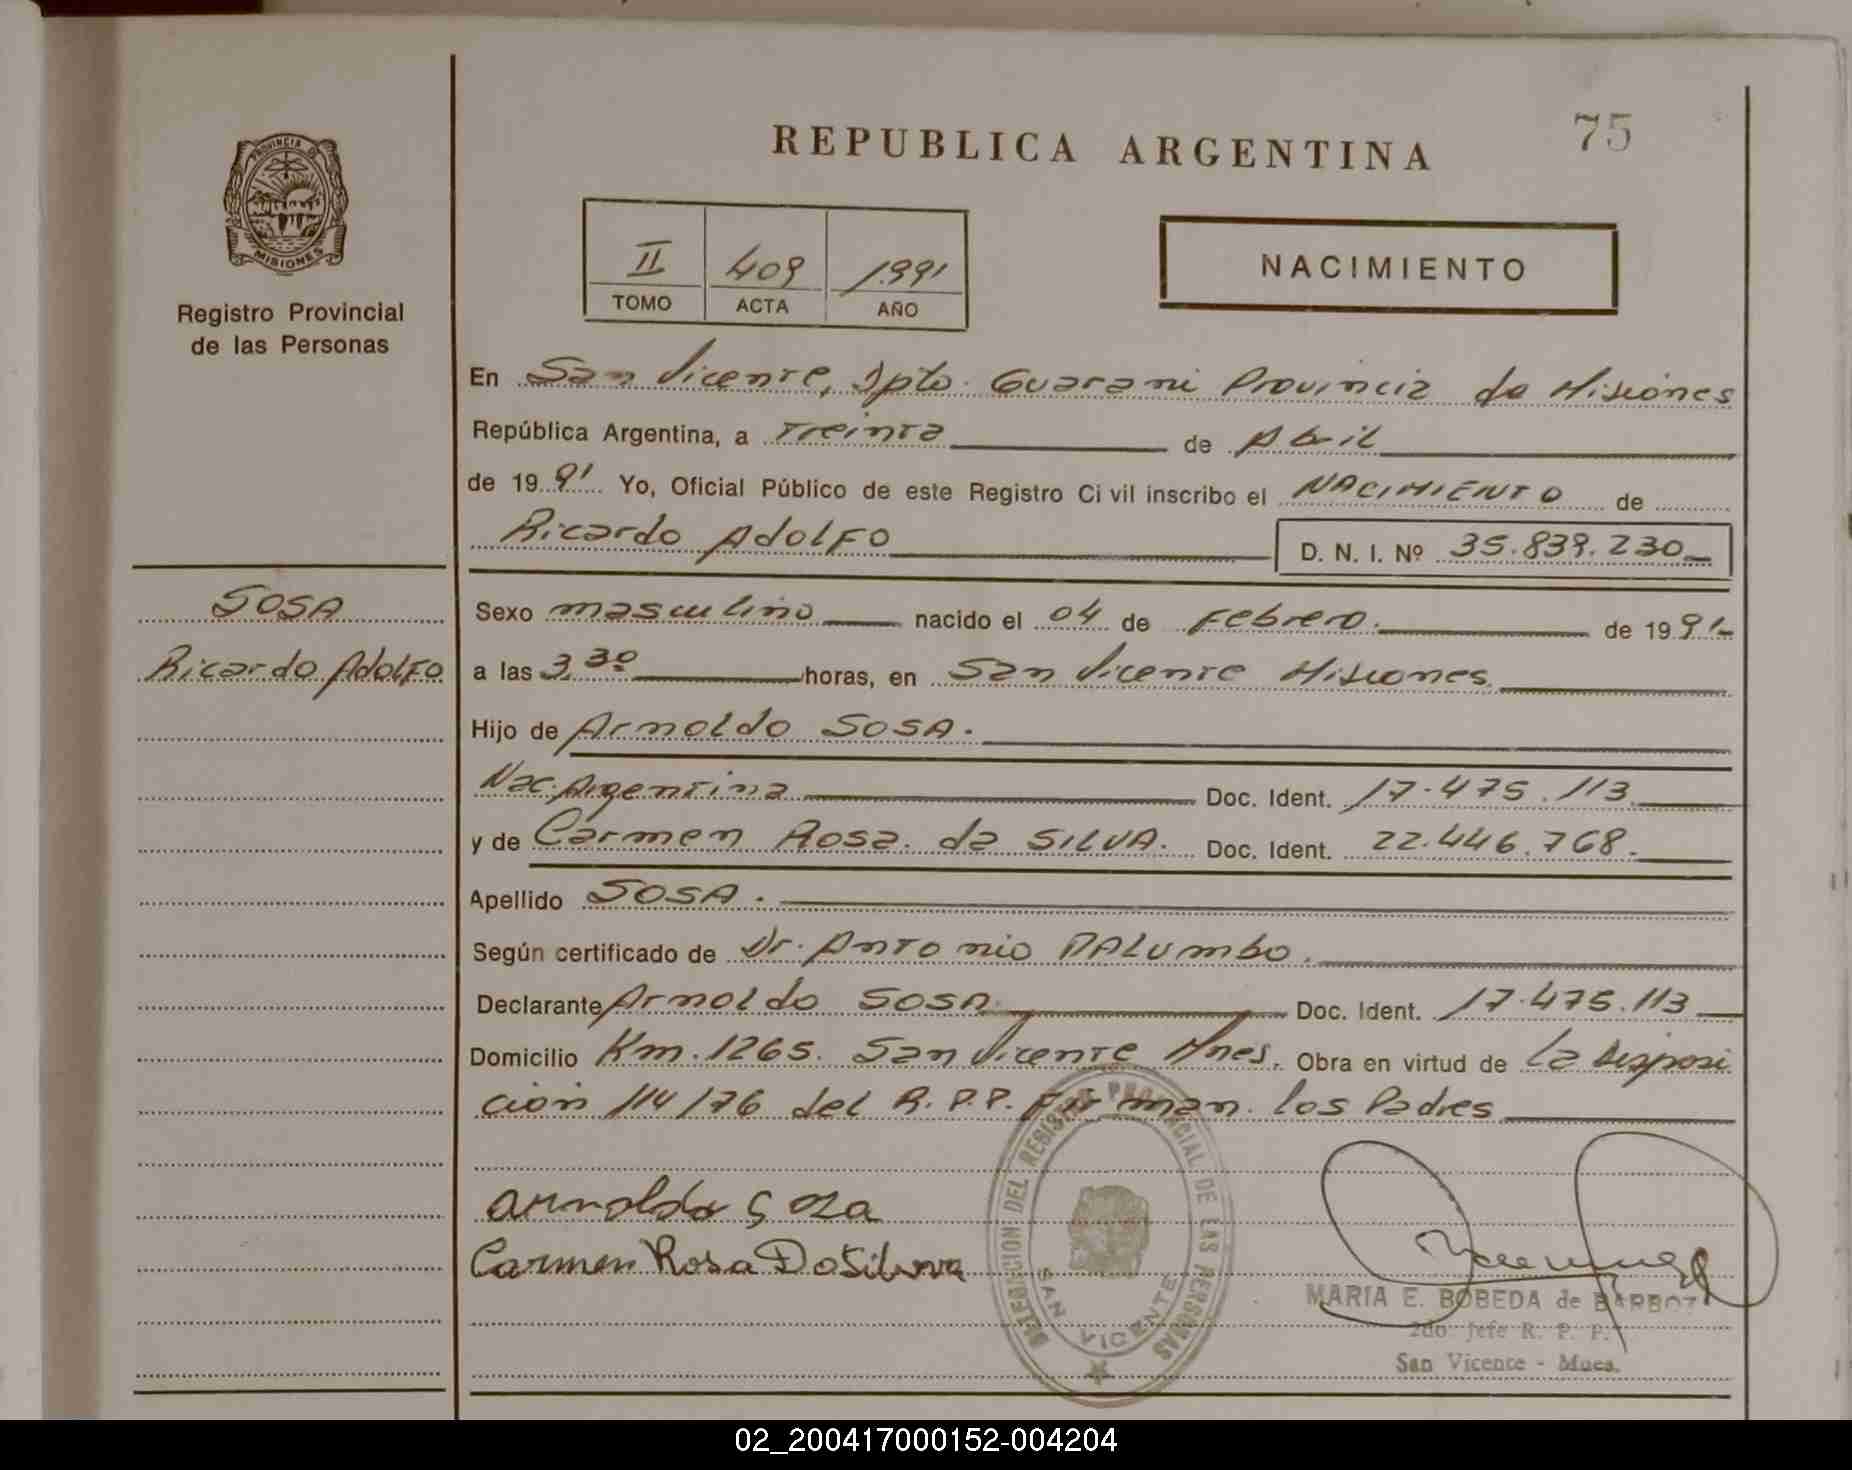 75
REPUBLICA ARGENTINA
PROVINCIA DE
MISIONES
Registro Provincial
de las Personas
II 409 1.991
TOMO ACTA AÑO
NACIMIENTO
En San Vicente, Dpto. Guarani Provincia de Misiones
República Argentina, a Treinta de Abril
de 1991 Yo, Oficial Público de este Registro Ci vil inscribo el NACIMIENTO de
Ricardo Adolfo D. N. I. Nº 35.839.230
SOSA
Ricardo Adolfo
Sexo masculino nacido el 04 de Febrero. de 1991
a las 3,30 horas, en San Vicente Misiones.
Hijo de Arnoldo SOSA.
Nac. Argentina Doc. Ident. 17.475.113
y de Carmen Rosa. da SILVA. Doc. Ident. 22.446.768.
Apellido SOSA.
Según certificado de Dr. Antonio PALUMBO.
Declarante Arnoldo SOSA. Doc. Ident. 17.475.113
Domicilio Km.1265. San Vicente Mnes. Obra en virtud de La Disposi
ción 114/76 del R.P.P. Firman. los Padres
Arnoldo Soza
Carmen Rosa Dasilva
DELEGACION DEL REGISTRO PROVINCIAL DE LAS PERSONAS
SAN VICENTE
MARIA E. BOBEDA de BARBOZ
2do Jefe R. P. P.
San Vicente - Mnes.
02_200417000152-004204